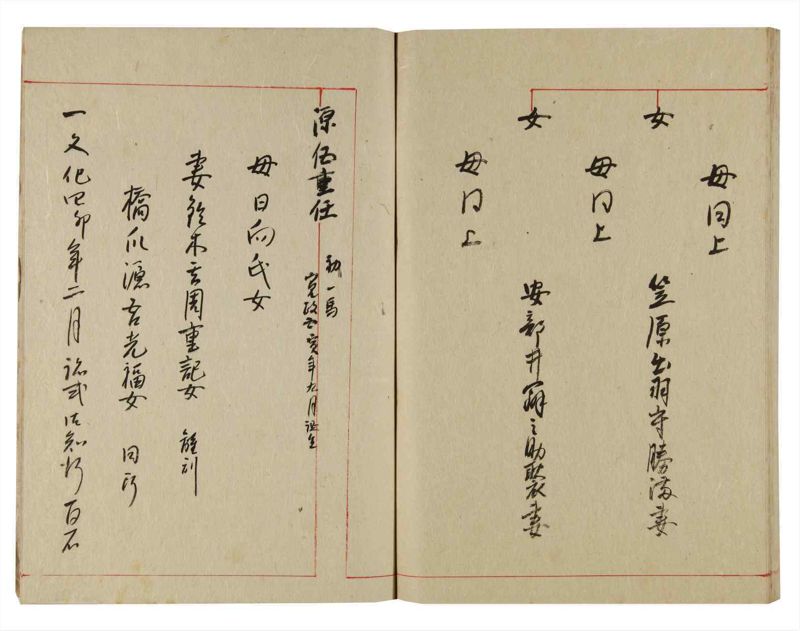 母同上
女
笠原出羽守勝満妻
母同上
女
安部井之助襲妻
母同上
源伍重任
初一馬
寛政亥年九月誕生
母日向氏女
妻鈴木周重記女 離別
橋爪源吾光福女 同所
一文化四卯年二月 百石